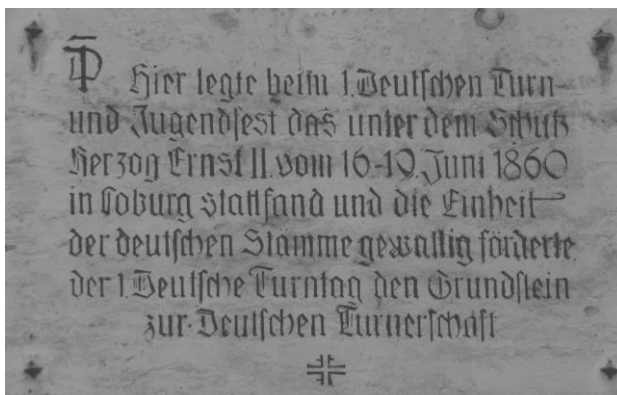 Hier legte beim 1. Deutschen Turn-
und Jugendfest das unter dem Schutz
Herzog Ernst II. vom 16-19. Juni 1860
in Coburg stattfand und die Einheit
der deutschen Stämme gewaltig förderte
der 1. Deutsche Turntag den Grundstein
zur Deutschen Turnerschaft